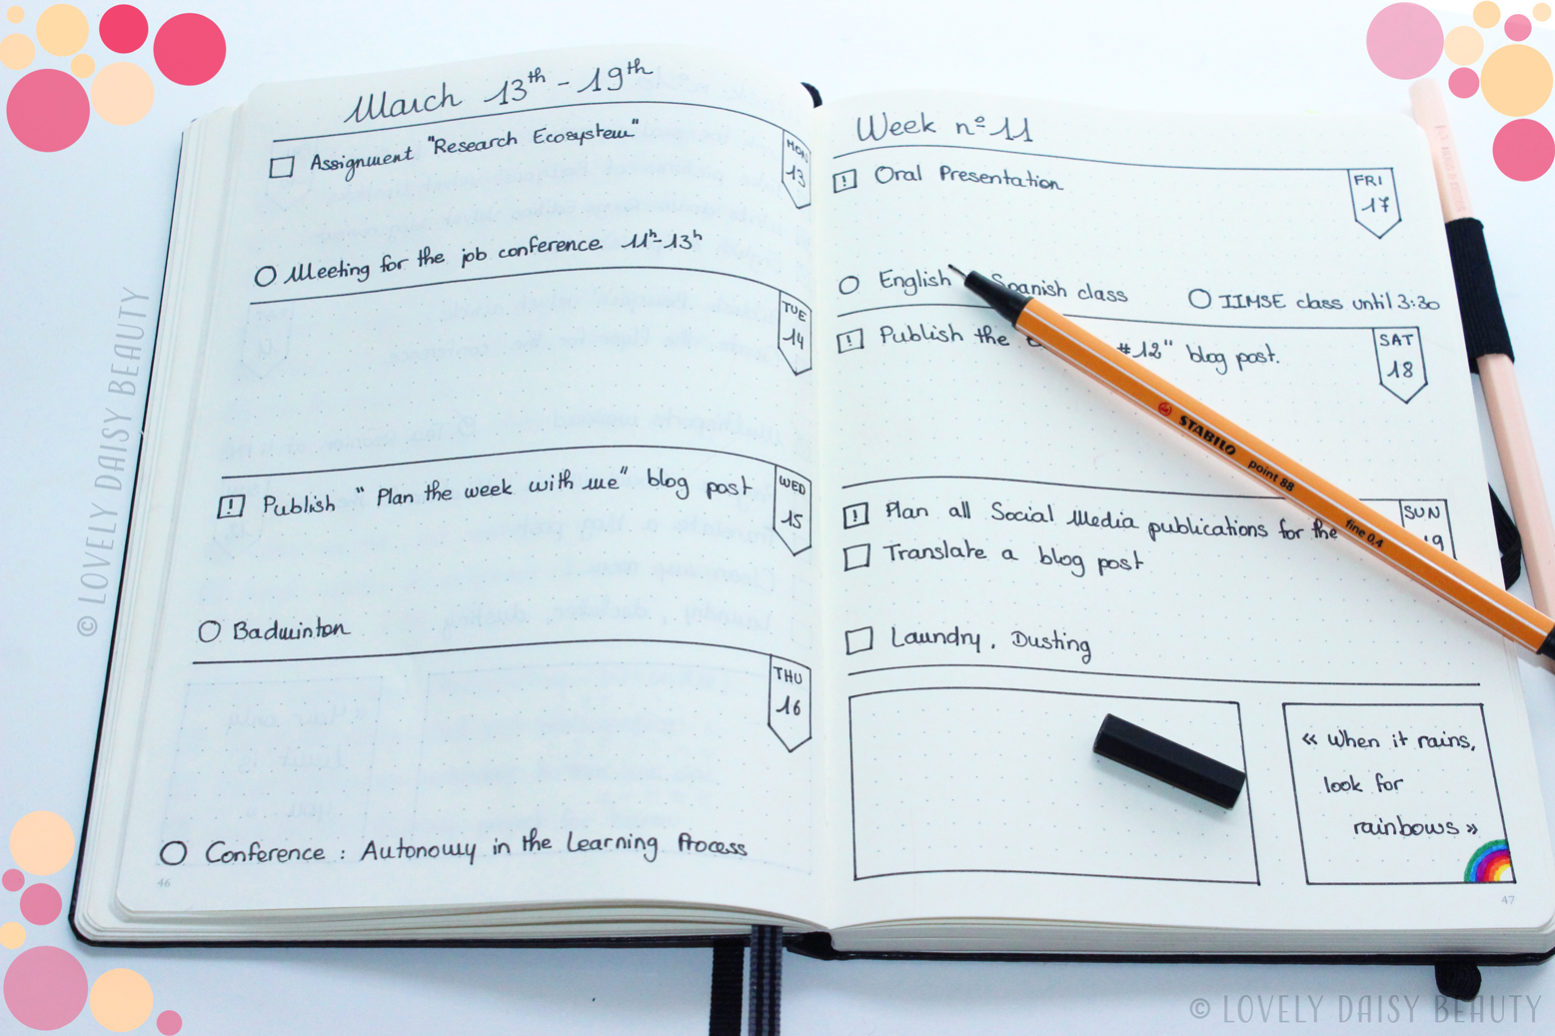 March 13th - 19th
Assignment "Research Ecosystem"
MON
13
Meeting for the job conference 11h-13h
TUE
14
Publish "Plan the week with me" blog post
WED
15
Badminton
THU
16
Conference : Autonomy in the Learning Process
46
Week n° 11
Oral Presentation
FRI
17
English Spanish class
IIMSE class until 3:30
Publish the #12" blog post.
SAT
18
Plan all Social Media publications for the
SUN
Translate a blog post
Laundry, Dusting
« When it rains,
look for
rainbows »
47
STABILO point 88 fine 0,4
© LOVELY DAISY BEAUTY
© LOVELY DAISY BEAUTY